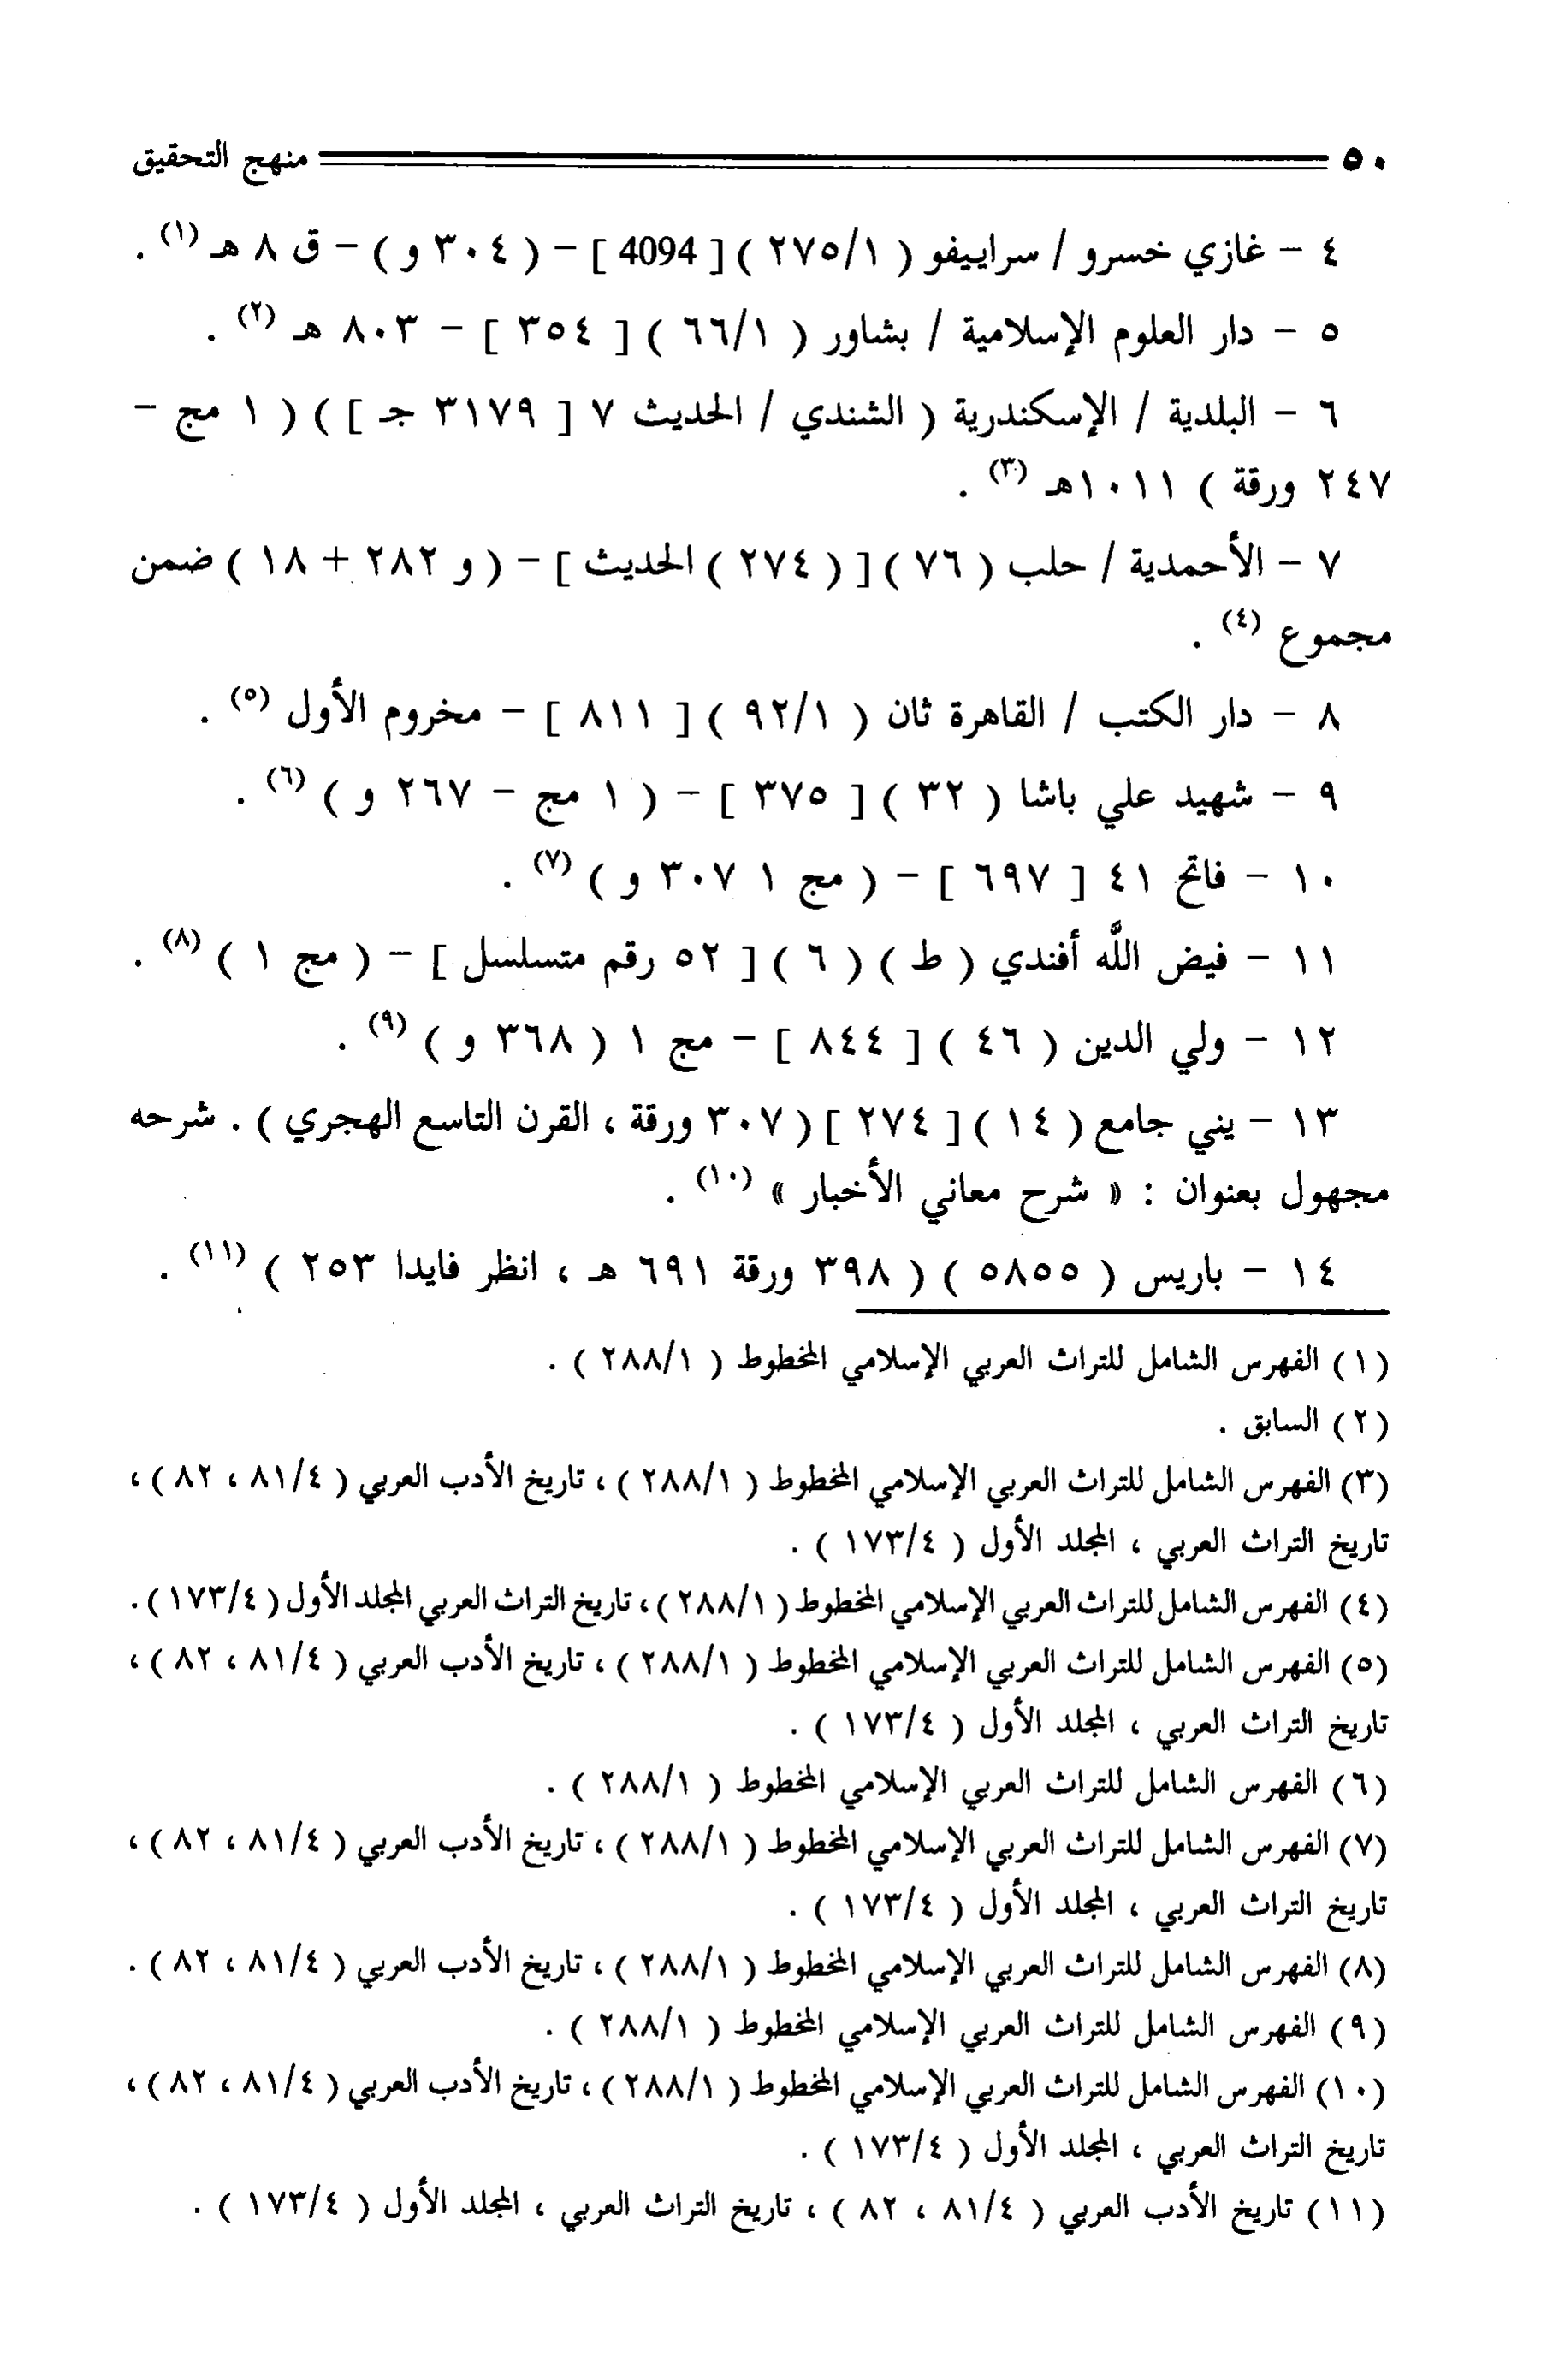 ٥٠ منهج التحقيق
٤ – غازي خسرو / سراييفو ( ٢٧٥/١ ) [ 4094 ] – ( ٣٠٤ و ) – ق ٨ هـ (١) .
٥ – دار العلوم الإسلامية / بشاور ( ٦٦/١ ) [ ٣٥٤ ] – ٨٠٣ هـ (٢) .
٦ – البلدية / الإسكندرية ( الشندي / الحديث ٧ [ ٣١٧٩ جـ ] ) ( ١ مج –
٢٤٧ ورقة ) ١٠١١هـ (٣) .
٧ – الأحمدية / حلب ( ٧٦ ) [ ( ٢٧٤ ) الحديث ] – ( و ٢٨٢ + ١٨ ) ضمن
مجموع (٤) .
٨ – دار الكتب / القاهرة ثان ( ٩٢/١ ) [ ٨١١ ] – مخروم الأول (٥) .
٩ – شهيد علي باشا ( ٣٢ ) [ ٣٧٥ ] – ( ١ مج – ٢٦٧ و ) (٦) .
١٠ – فاتح ٤١ [ ٦٩٧ ] – ( مج ١ ٣٠٧ و ) (٧) .
١١ – فيض اللَّه أفندي ( ط ) ( ٦ ) [ ٥٢ رقم متسلسل ] – ( مج ١ ) (٨) .
١٢ – ولي الدين ( ٤٦ ) [ ٨٤٤ ] – مج ١ ( ٣٦٨ و ) (٩) .
١٣ – يني جامع ( ١٤ ) [ ٢٧٤ ] ( ٣٠٧ ورقة ، القرن التاسع الهجري ) . شرحه
مجهول بعنوان : « شرح معاني الأخبار » (١٠) .
١٤ – باريس ( ٥٨٥٥ ) ( ٣٩٨ ورقة ٦٩١ هـ ، انظر فايدا ٢٥٣ ) (١١) .
(١) الفهرس الشامل للتراث العربي الإسلامي المخطوط ( ٢٨٨/١ ) .
(٢) السابق .
(٣) الفهرس الشامل للتراث العربي الإسلامي المخطوط ( ٢٨٨/١ ) ، تاريخ الأدب العربي ( ٨١/٤ ، ٨٢ ) ،
تاريخ التراث العربي ، المجلد الأول ( ١٧٣/٤ ) .
(٤) الفهرس الشامل للتراث العربي الإسلامي المخطوط ( ٢٨٨/١ ) ، تاريخ التراث العربي المجلد الأول ( ١٧٣/٤ ) .
(٥) الفهرس الشامل للتراث العربي الإسلامي المخطوط ( ٢٨٨/١ ) ، تاريخ الأدب العربي ( ٨١/٤ ، ٨٢ ) ،
تاريخ التراث العربي ، المجلد الأول ( ١٧٣/٤ ) .
(٦) الفهرس الشامل للتراث العربي الإسلامي المخطوط ( ٢٨٨/١ ) .
(٧) الفهرس الشامل للتراث العربي الإسلامي المخطوط ( ٢٨٨/١ ) ، تاريخ الأدب العربي ( ٨١/٤ ، ٨٢ ) ،
تاريخ التراث العربي ، المجلد الأول ( ١٧٣/٤ ) .
(٨) الفهرس الشامل للتراث العربي الإسلامي المخطوط ( ٢٨٨/١ ) ، تاريخ الأدب العربي ( ٨١/٤ ، ٨٢ ) .
(٩) الفهرس الشامل للتراث العربي الإسلامي المخطوط ( ٢٨٨/١ ) .
(١٠) الفهرس الشامل للتراث العربي الإسلامي المخطوط ( ٢٨٨/١ ) ، تاريخ الأدب العربي ( ٨١/٤ ، ٨٢ ) ،
تاريخ التراث العربي ، المجلد الأول ( ١٧٣/٤ ) .
(١١) تاريخ الأدب العربي ( ٨١/٤ ، ٨٢ ) ، تاريخ التراث العربي ، المجلد الأول ( ١٧٣/٤ ) .